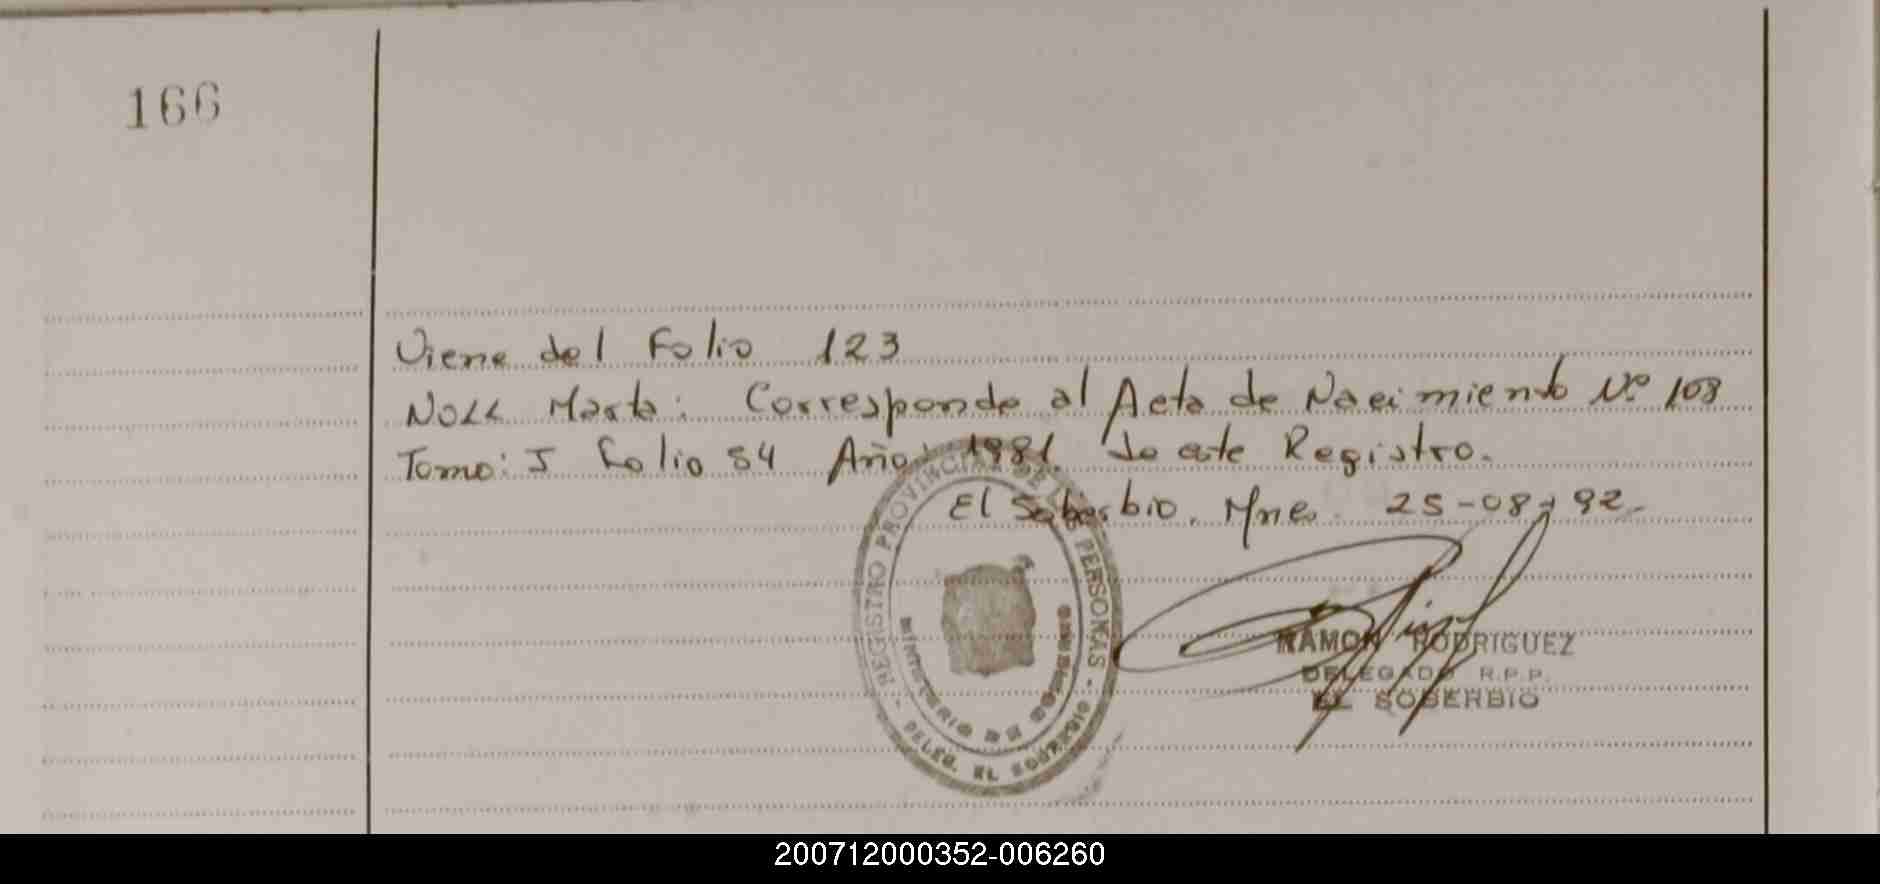 166
Viene del Folio 123
NOLL Marta: Corresponde al Acta de Nacimiento Nº 108
Tomo: I Folio 54 Año: 1981. de este Registro.
El Soberbio. Mnes. 25-08-92-
REGISTRO PROVINCIAL DE LAS PERSONAS - DELEG. EL SOBERBIO -
MINISTERIO DE GOBIERNO
RAMON RODRIGUEZ
DELEGADO R.P.P.
EL SOBERBIO
200712000352-006260